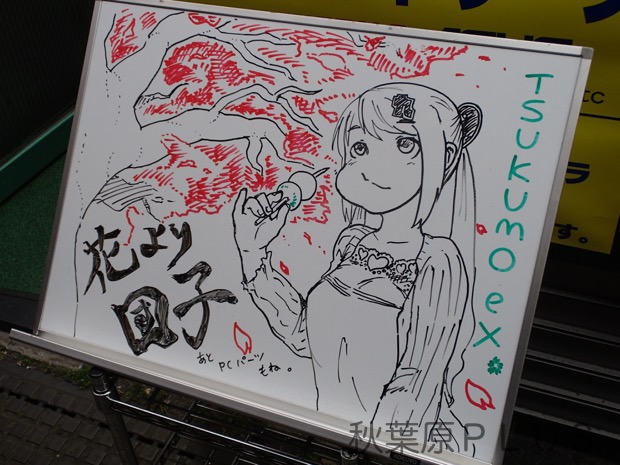 TSUKUMO eX
花より
団子
あと
PCパーツ
もね。
ラ
す。
秋葉原PLUS